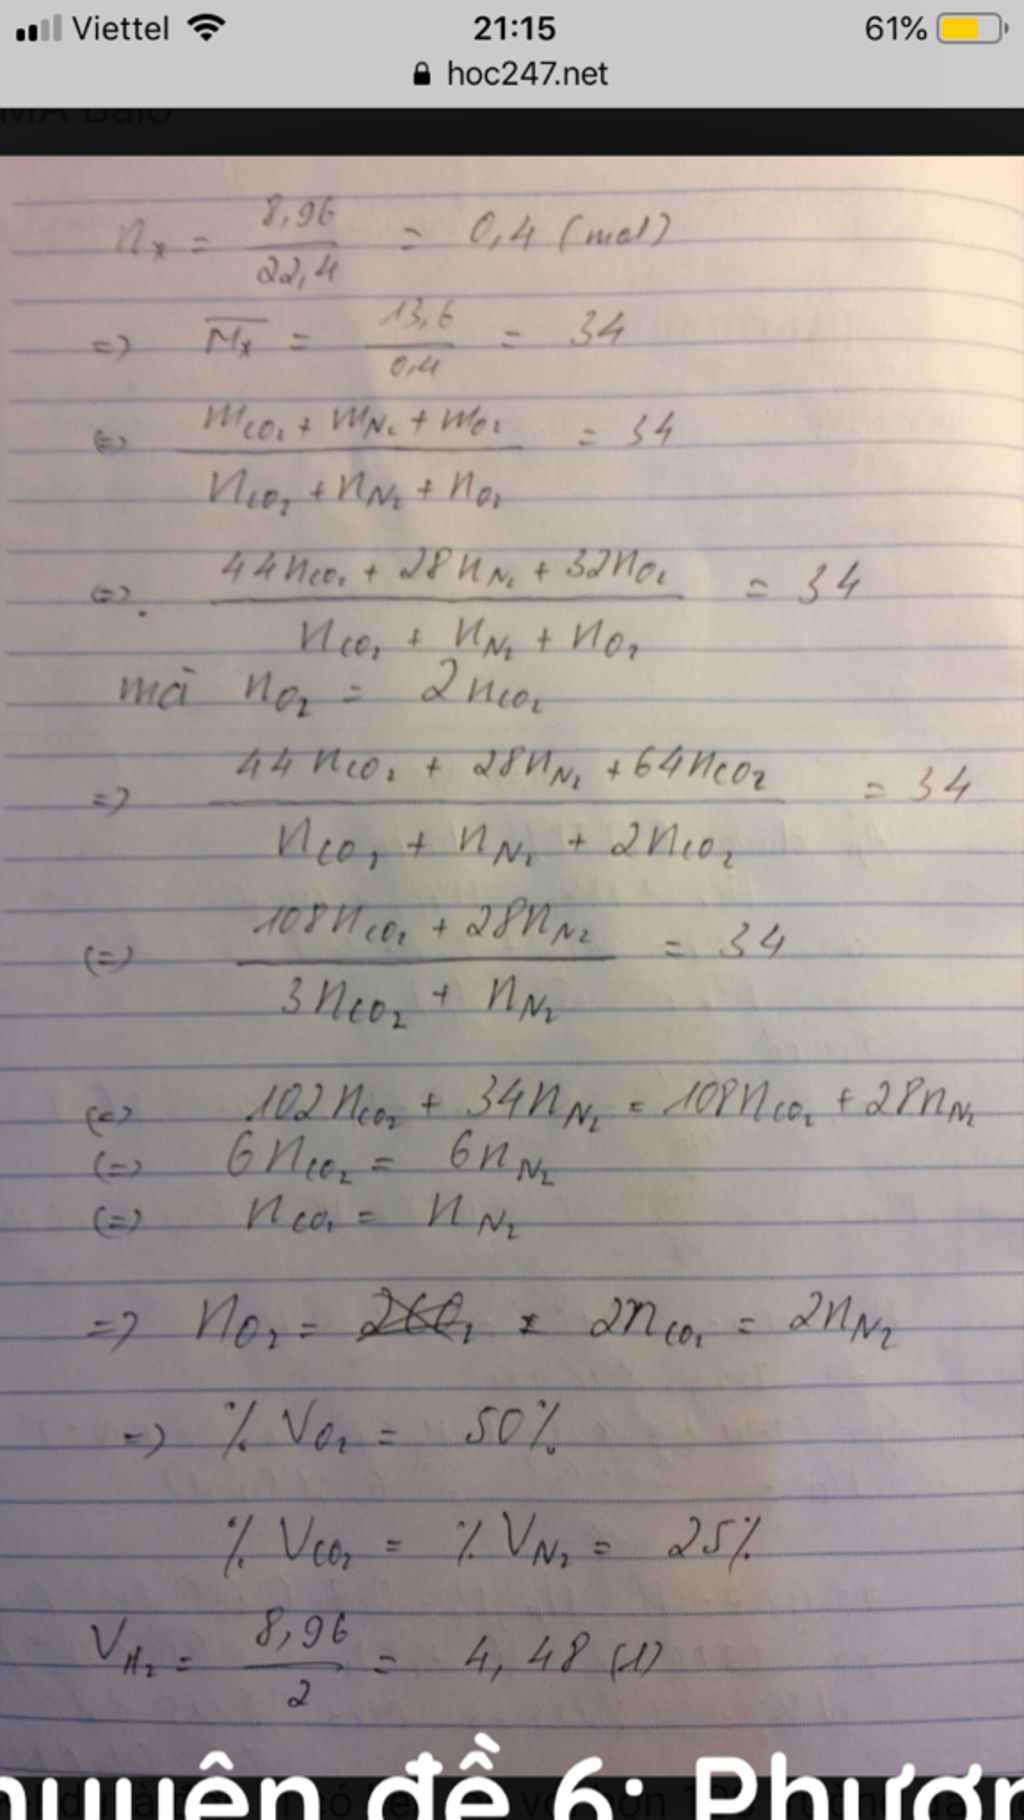 Viettel 21:15 61%
hoc247.net
n_x = 8,96/22,4 = 0,4 (mol)
=> M̅_x = 13,6/0,4 = 34
<=> (m_CO₂ + m_N₂ + m_O₂)/(n_CO₂ + n_N₂ + n_O₂) = 34
<=> (44n_CO₂ + 28n_N₂ + 32n_O₂)/(n_CO₂ + n_N₂ + n_O₂) = 34
mà n_O₂ = 2n_CO₂
=> (44n_CO₂ + 28n_N₂ + 64n_CO₂)/(n_CO₂ + n_N₂ + 2n_CO₂) = 34
(=) (108n_CO₂ + 28n_N₂)/(3n_CO₂ + n_N₂) = 34
(=) 102n_CO₂ + 34n_N₂ = 108n_CO₂ + 28n_N₂
(=) 6n_CO₂ = 6n_N₂
(=) n_CO₂ = n_N₂
=> n_O₂ = 2n_CO₂ = 2n_N₂
=> % V_O₂ = 50%
% V_CO₂ = % V_N₂ = 25%
V_H₂ = 8,96/2 = 4,48 (l)
huyên đề 6: Phươn